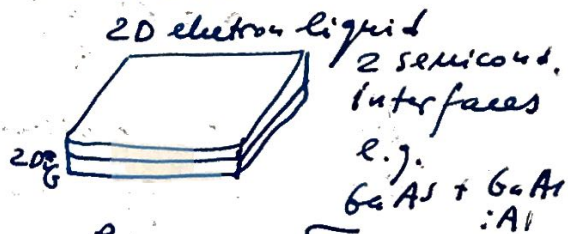 2D electron liquid
2 semicond.
interfaces
e.g.
GaAs + GaAs
:Al
2DEG